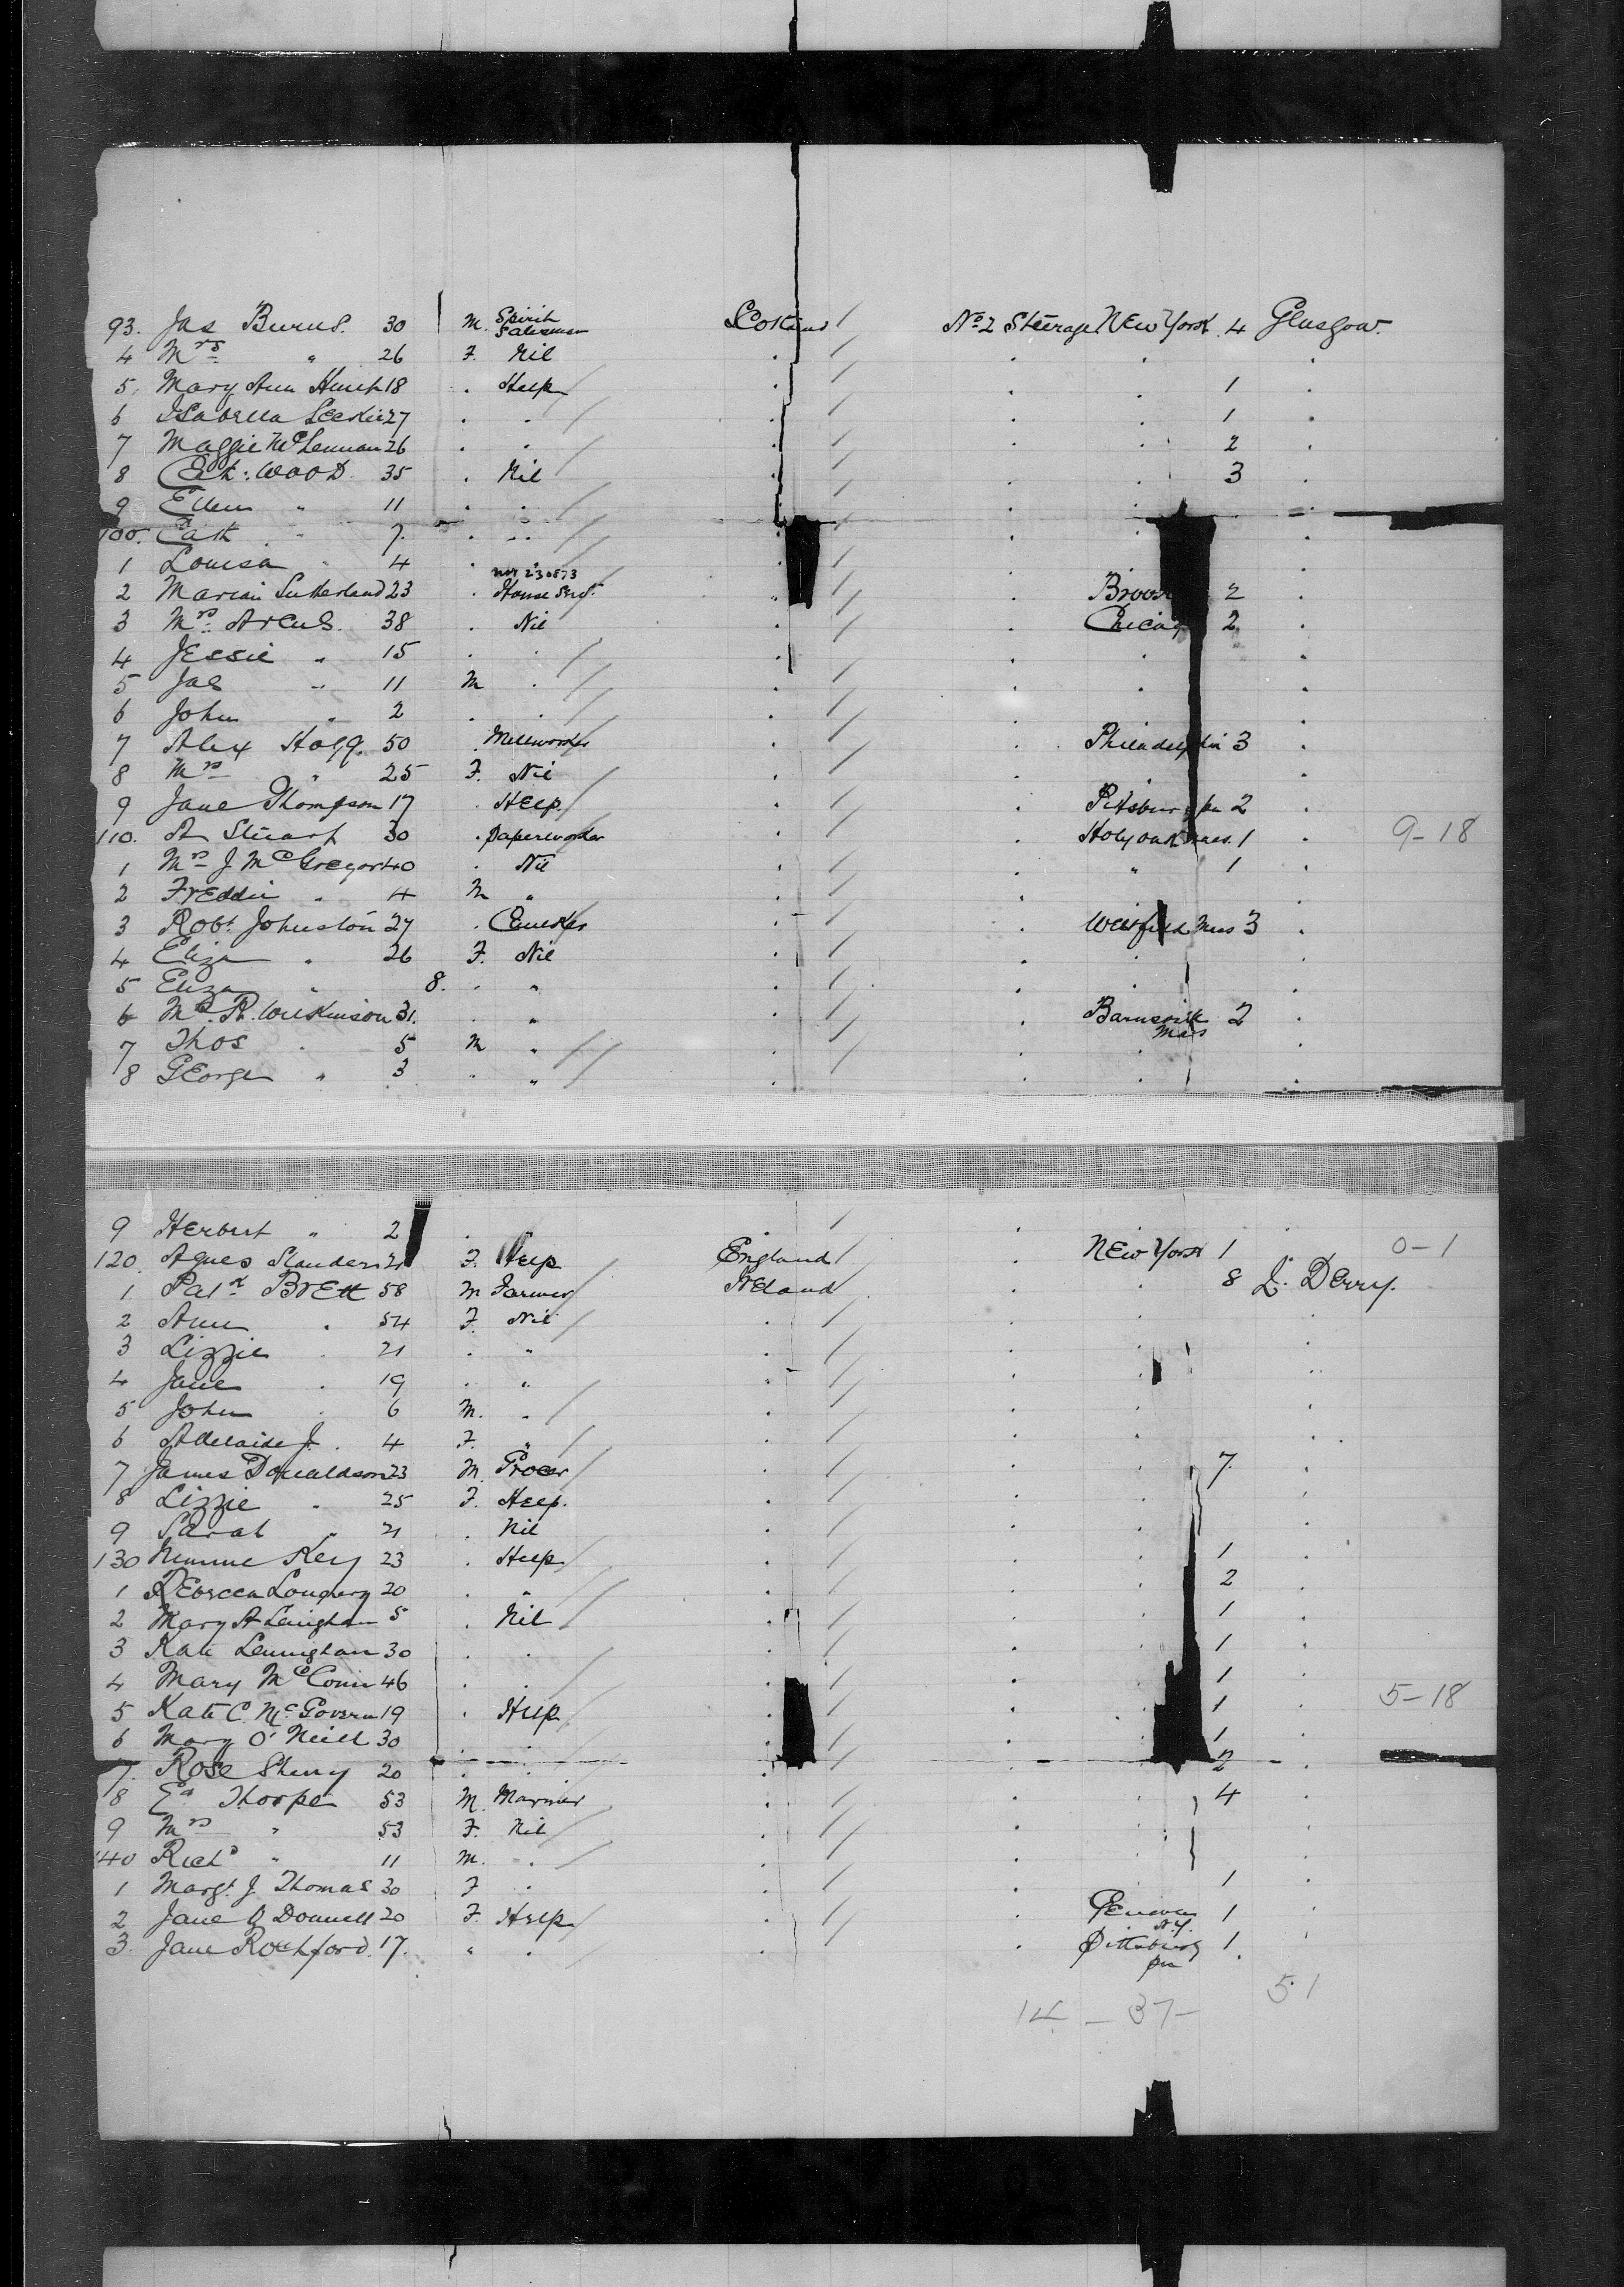 93. Jas Burns. 30 M. Spirit Salesman Scotland No 2 Steerage New York 4 Glasgow.
4 Mrs " 26 F. Nil
5. Mary Ann 18 . Help . . . 1 .
6 Isabella Leckie 27 . . . . . 1 .
7 Maggie McLennan 26 . . . . . 2 .
8 Cath: Wood 35 . Nil . . . 3
9 Ellen " 11 . . . . . .
100. Cath " 7. . . . . . .
1 Louisa " 4 .
2 Marian Sutherland 23 . House Servt. . . 2 .
3 Mrs Arcus. 38 . Nil . . 2 .
4 Jessie " 15 . . . . . .
5 Jas " 11 M . . . . .
6 John " 2 . . . . .
7 Alex Hogg. 50 . Millworker . . Philadelphia 3 .
8 Mrs " 25 F. Nil . . . .
9 Jane Thompson 17 . Help. . . Pitsburg pa 2 .
110. A Stuart 30 . paperworker . . Holyoak Mass. 1 . 9-18
1 Mrs J McGregor 40 . Nil . . " 1 .
2 Freddie " 4 M " . . . .
3 Robt Johnston 27 . . . Mass 3 .
4 Eliza " 26 F. Nil . . . .
5 Eliza " 8. . " . . . .
6 Mrs R. Wilkinson 31. . " . . Barnsville Mass 2 .
7 Thos . 5 M " . . . .
8 George " 3 . " . . . .
9 Herbert " 2 . . . . .
120. Agnes 21 F. Help England . New York 1 0-1
1 Patk Brett 58 M Farmer Ireland . . 8 L. Derry.
2 Ann . 54 F. Nil . . . .
3 Lizzie . 21 . " . . . .
4 Jane . 19 . " . . . .
5 John . 6 M. " . . . .
6 Adelaide J. . 4 F. " . . . .
7 James Donaldson 23 M. Grocer . . . 7. .
8 Lizzie " 25 F. Help. . . . .
9 Sarah " 21 . Nil . . . .
130 Minnie Key 23 . Help . . . 1 .
1 Rebecca 20 . " . . . 2 .
2 Mary A 5 . Nil . . . 1 .
3 Kate 30 . . . . . 1 .
4 Mary 46 . . . . . 1 .
5 Kate C. McGovern 19 . Help . . . 1 . 5-18
6 Mary O'Neill 30 . . . . . 1 .
7. Rose Sherry 20 . . . . . 2 .
8 Ed Thorpe 53 M. Mariner . . . 4 .
9 Mrs " 53 F. Nil . . . .
140 Richd " 11 M. . . . . .
1 Margt J. Thomas 30 F . . . . 1 .
2 Jane O'Donnell 20 F. Help . . Geneva N.Y. 1 .
3. Jane Rochford. 17. " . . . Pittsburg pa 1. .
14 - 37- 51